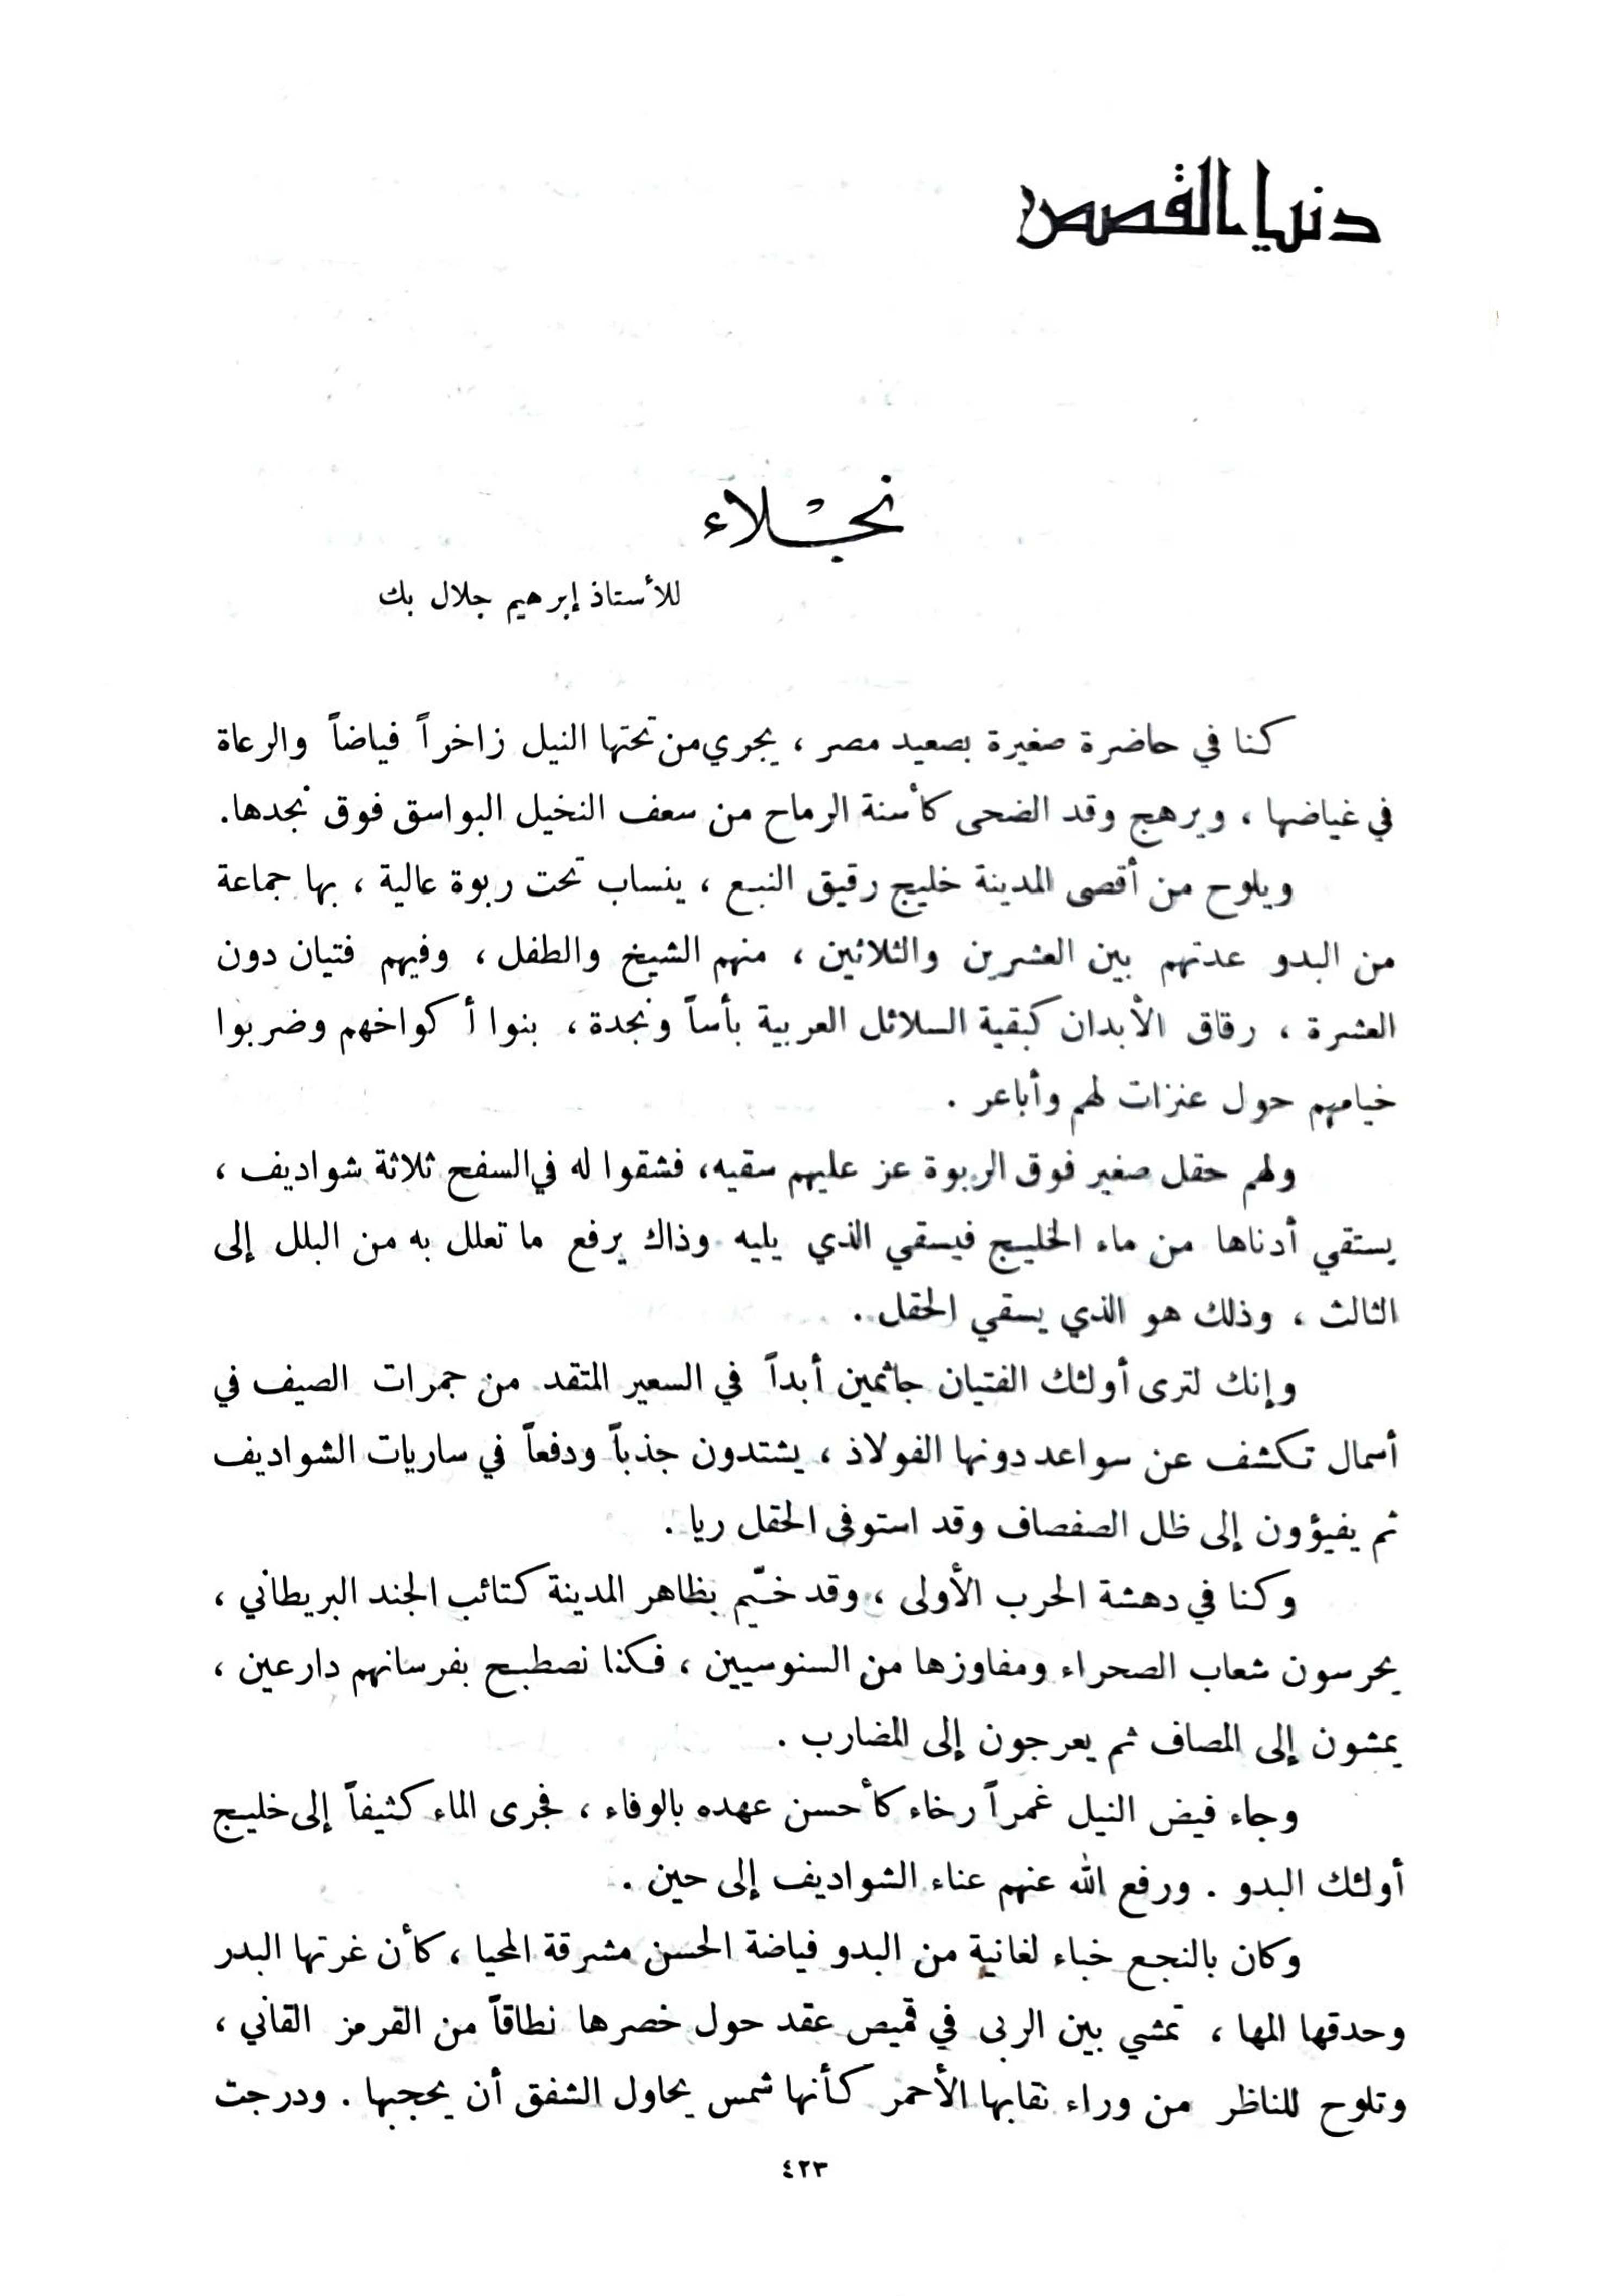 دنيا القصص
نجْلاء
للأستاذ إبرهيم جلال بك
كنا في حاضرة صغيرة بصعيد مصر ، يجري من تحتها النيل زاخراً فياضاً والرعاة
في غياضها ، ويرهج وقد الضحى كأسنة الرماح من سعف النخيل البواسق فوق نجدها .
ويلوح من أقصى المدينة خليج رقيق النبع ، ينساب تحت ربوة عالية ، بها جماعة
من البدو عدتهم بين العشرين والثلاثين ، منهم الشيخ والطفل ، وفيهم فتيان دون
العشرة ، رقاق الأبدان كبقية السلائل العربية بأساً ونجدة ، بنوا أكواخهم وضربوا
خيامهم حول عنزات لهم وأباعر .
ولهم حقل صغير فوق الربوة عز عليهم سقيه ، فشقوا له في السفح ثلاثة شواديف ،
يستقي أدناها من ماء الخليج فيسقي الذي يليه وذاك يرفع ما تعلل به من البلل إلى
الثالث ، وذلك هو الذي يسقي الحقل .
وإنك لترى أولئك الفتيان جاثمين أبداً في السعير المتقد من جمرات الصيف في
أسمال تكشف عن سواعد دونها الفولاذ ، يشتدون جذباً ودفعاً في ساريات الشواديف
ثم يفيؤون إلى ظل الصفصاف وقد استوفى الحقل ريا .
وكنا في دهشة الحرب الأولى ، وقد خيّم بظاهر المدينة كتائب الجند البريطاني ،
يحرسون شعاب الصحراء ومفاوزها من السنوسيين ، فكنا نصطبح بفرسانهم دارعين ،
يمشون إلى المصاف ثم يعرجون إلى المضارب .
وجاء فيض النيل غمراً رخاء كأحسن عهده بالوفاء ، فجرى الماء كثيفاً إلى خليج
أولئك البدو . ورفع الله عنهم عناء الشواديف إلى حين .
وكان بالنجع خباء لغانية من البدو فياضة الحسن مشرقة المحيا ، كأن غرتها البدر
وحدقها المها ، تمشي بين الربى في قميص عقد حول خصرها نطاقاً من القرمز القاني ،
وتلوح للناظر من وراء نقابها الأحمر كأنها شمس يحاول الشفق أن يحجبها . ودرجت
٤٢٣